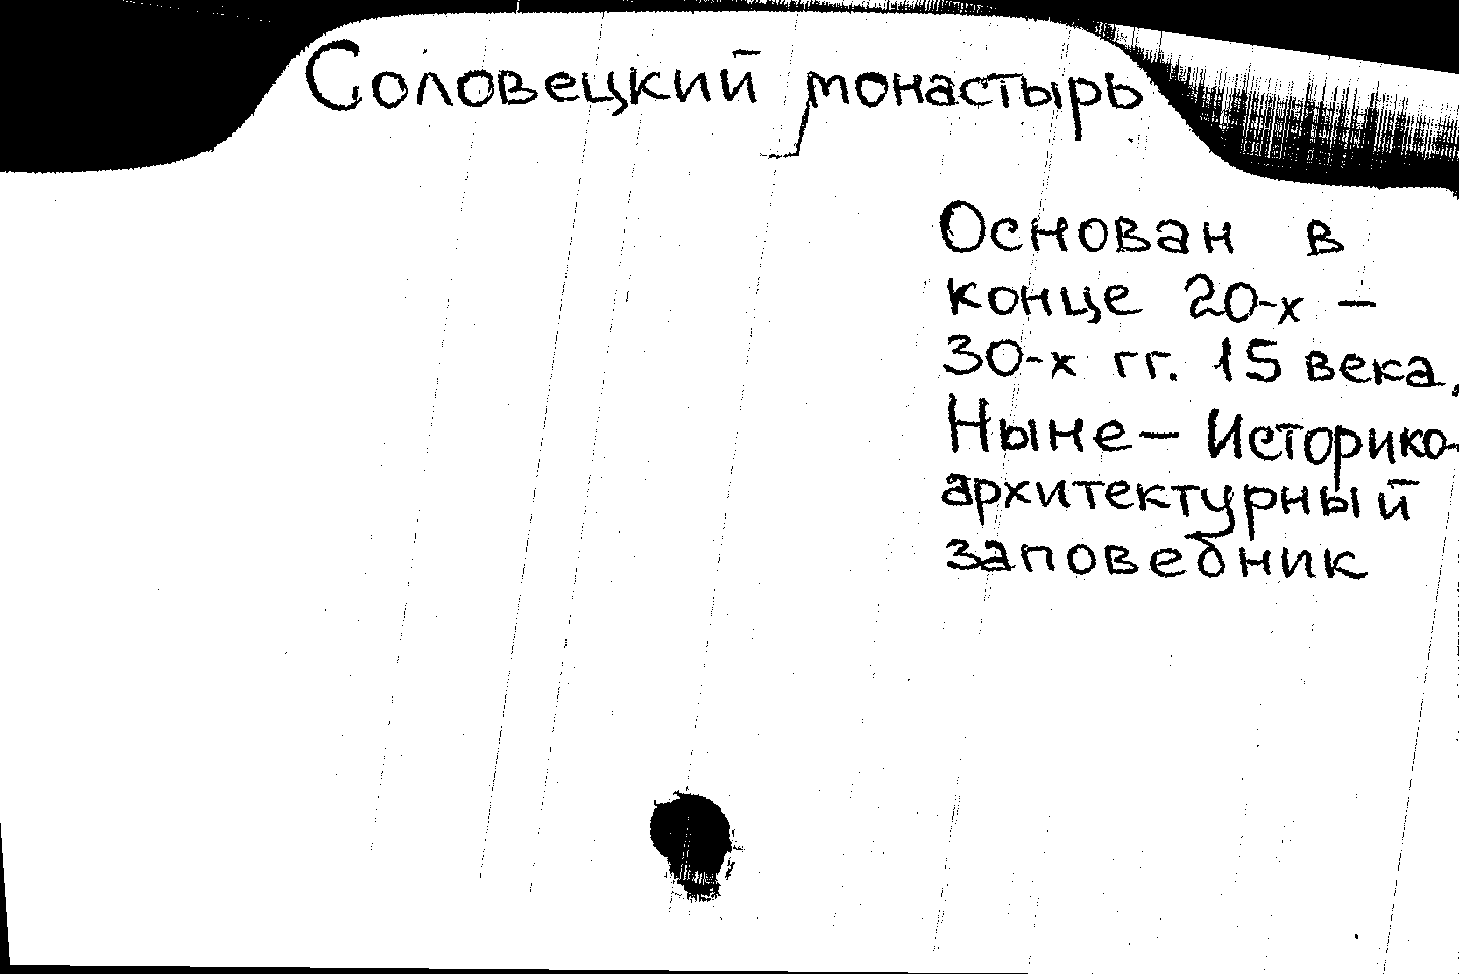 Соловецкий монастырь
Основан в
конце 20-х –
30-х гг. 15 века.
Ныне – Историко-
архитектурный
заповедник